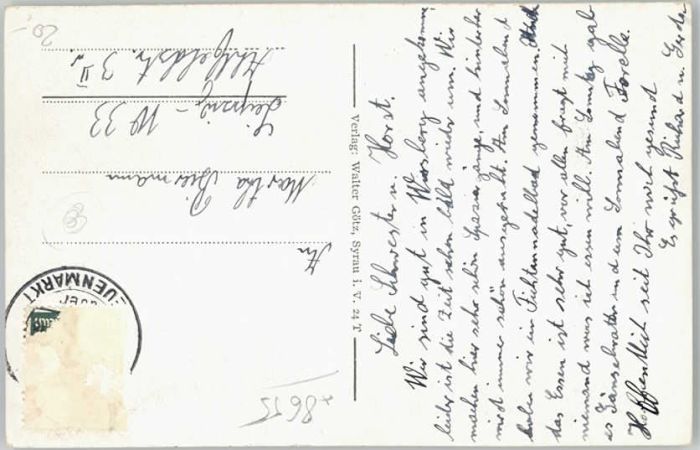 Liebe Schwester u. Horst.
Wir sind gut in Wirsberg angekommen,
leider ist die Zeit schon bald wieder um. Wir
machen hier sehr schön Spaziergänge, und hinterher
wird immer schön ausgeruht. Am Sonnabend
haben wir ein Fichtennadelbad genommen. Auch
das Essen ist sehr gut, vor allen fragt mich
niemand was ich essen will. Am Sonntag gab
es Gänsebraten und am Sonnabend Forelle.
Hoffentlich seit Ihr noch gesund
Es grüßt Richard u. Gerda
Verlag: Walter Götz, Syrau i. V. 24 T
An
Martha Biermann
Leipzig - W 33
3 II
20-
*8655
ENMARKT